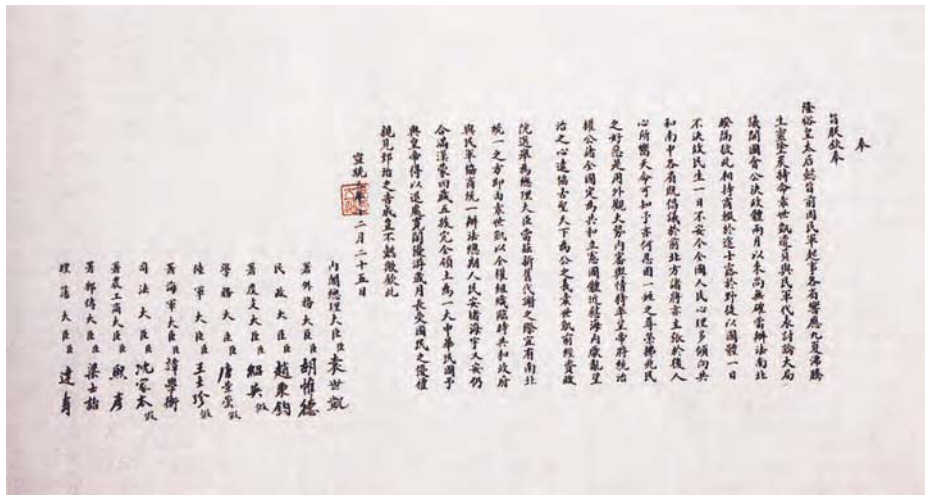 奉
旨朕欽奉
隆裕皇太后懿旨前因國民軍起事各省響應九夏沸騰
生靈塗炭特命袁世凱遣員與民軍代表討論大局
議開國會公決政體兩月以來尚無確當辦法南北
暌隔彼此相持商輟於途士露於野徒以國體一日
不決故民生一日不安今全國人民心理多傾向共
和南中各省既倡議於前北方諸將亦主張於後人
心所嚮天命可知予亦何忍因一姓之尊榮拂兆民
之好惡是用外觀大勢內審輿情特率皇帝將統治
權公諸全國定為共和立憲國體近慰海內厭亂望
治之心遠協古聖天下為公之義袁世凱前經資政
院選舉為總理大臣當茲新舊代謝之際宜有南北
統一之方即由袁世凱以全權組織臨時共和政府
與民軍協商統一辦法總期人民安堵海宇乂安仍
合滿漢蒙回藏五族完全領土為一大中華民國予
與皇帝得以退處寬閒優游歲月長受國民之優禮
親見郅治之告成豈不懿歟欽此
宣統三年十二月二十五日
內閣總理大臣臣袁世凱
署外務大臣臣胡惟德
民政大臣臣趙秉鈞
署度支大臣臣紹英假
學務大臣臣唐景崇假
陸軍大臣臣王士珍假
署海軍大臣臣譚學衡
司法大臣臣沈家本假
署農工商大臣臣熙彥
署郵傳大臣臣梁士詒
理藩大臣臣達壽